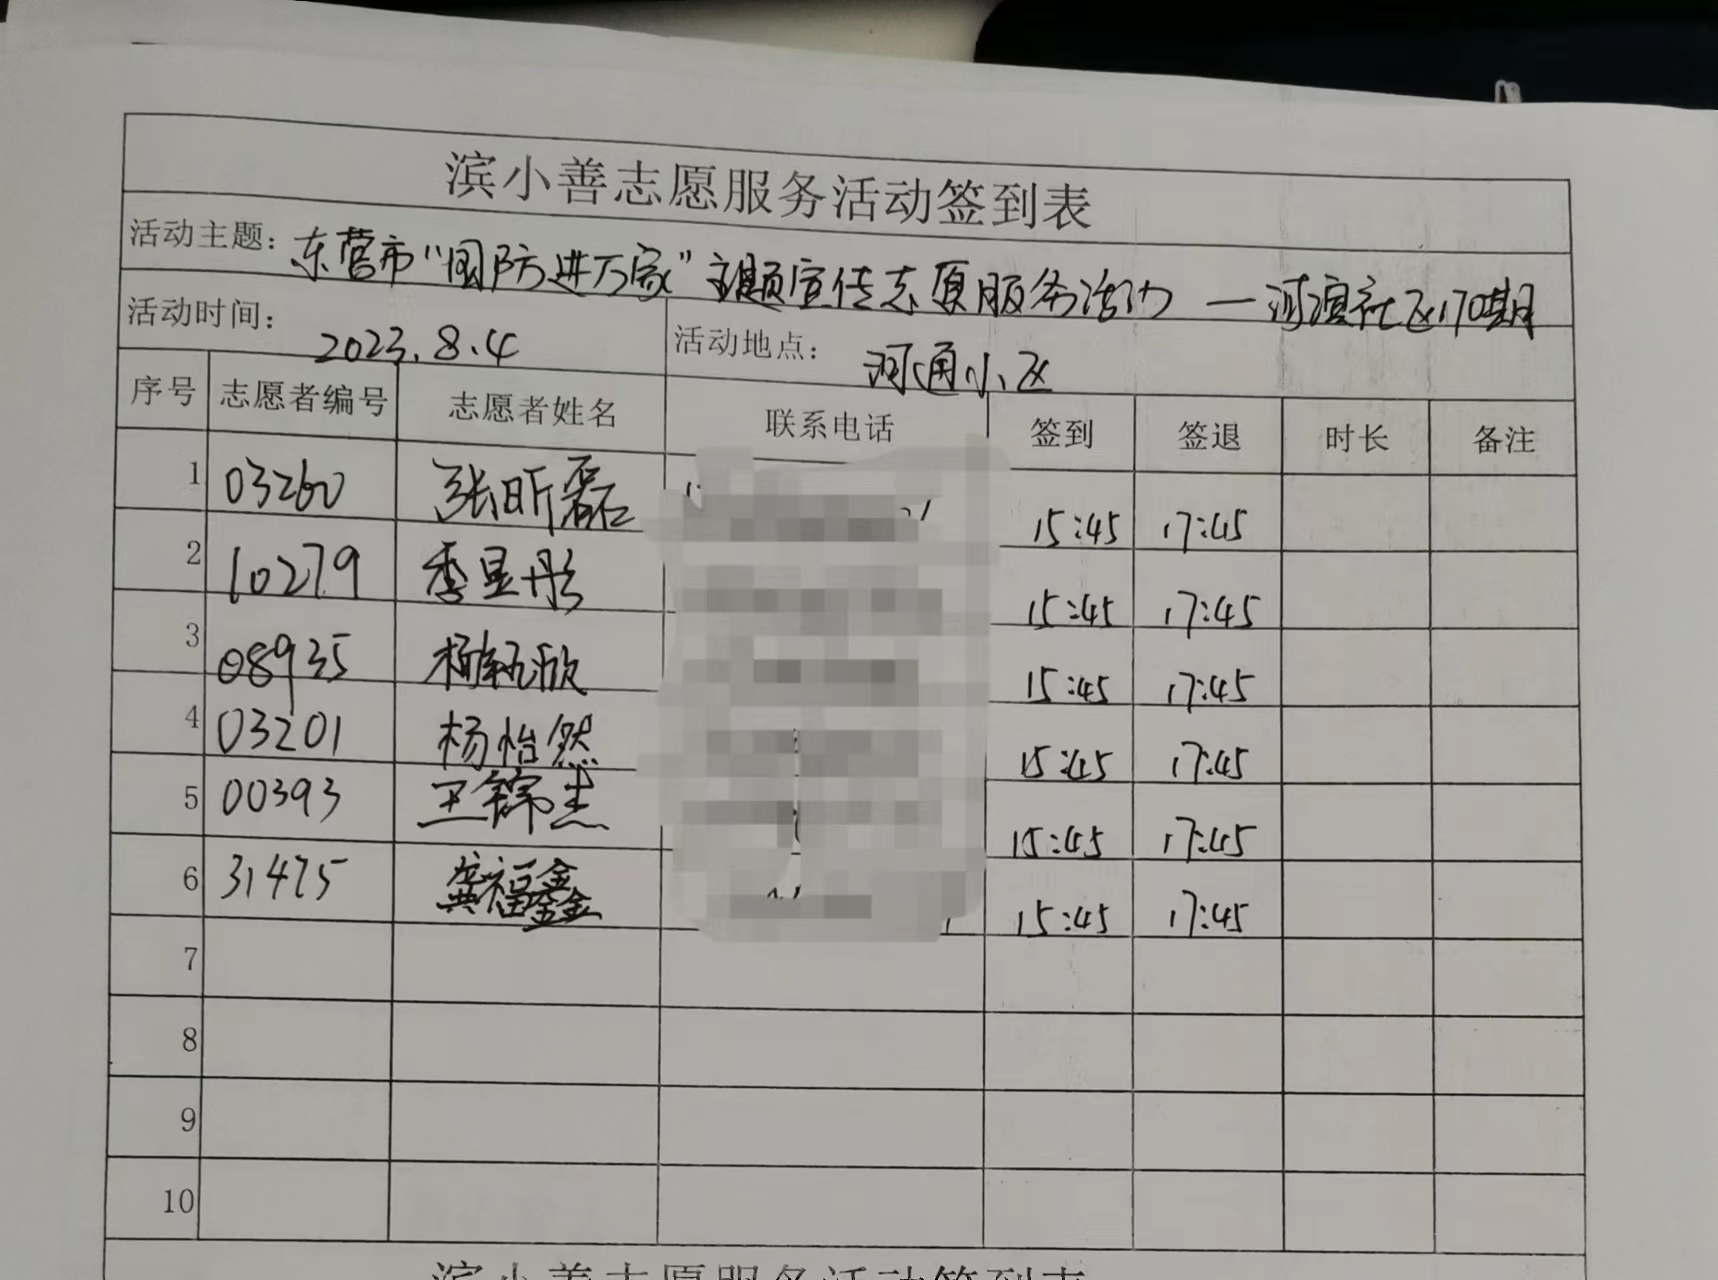 滨小善志愿服务活动签到表
活动主题：东营市“国防进万家”主题宣传志愿服务活动 — 河滨社区170期
活动时间：2023.8.4 活动地点：河通小区
序号 志愿者编号 志愿者姓名 联系电话 签到 签退 时长 备注
1 03260 张昕磊 15:45 17:45
2 10279 季显彤 15:45 17:45
3 08935 杨 欣 15:45 17:45
4 03201 杨怡然 15:45 17:45
5 00393 王锦杰 15:45 17:45
6 31475 龚福鑫 15:45 17:45
7
8
9
10
滨小善志愿服务活动签到表